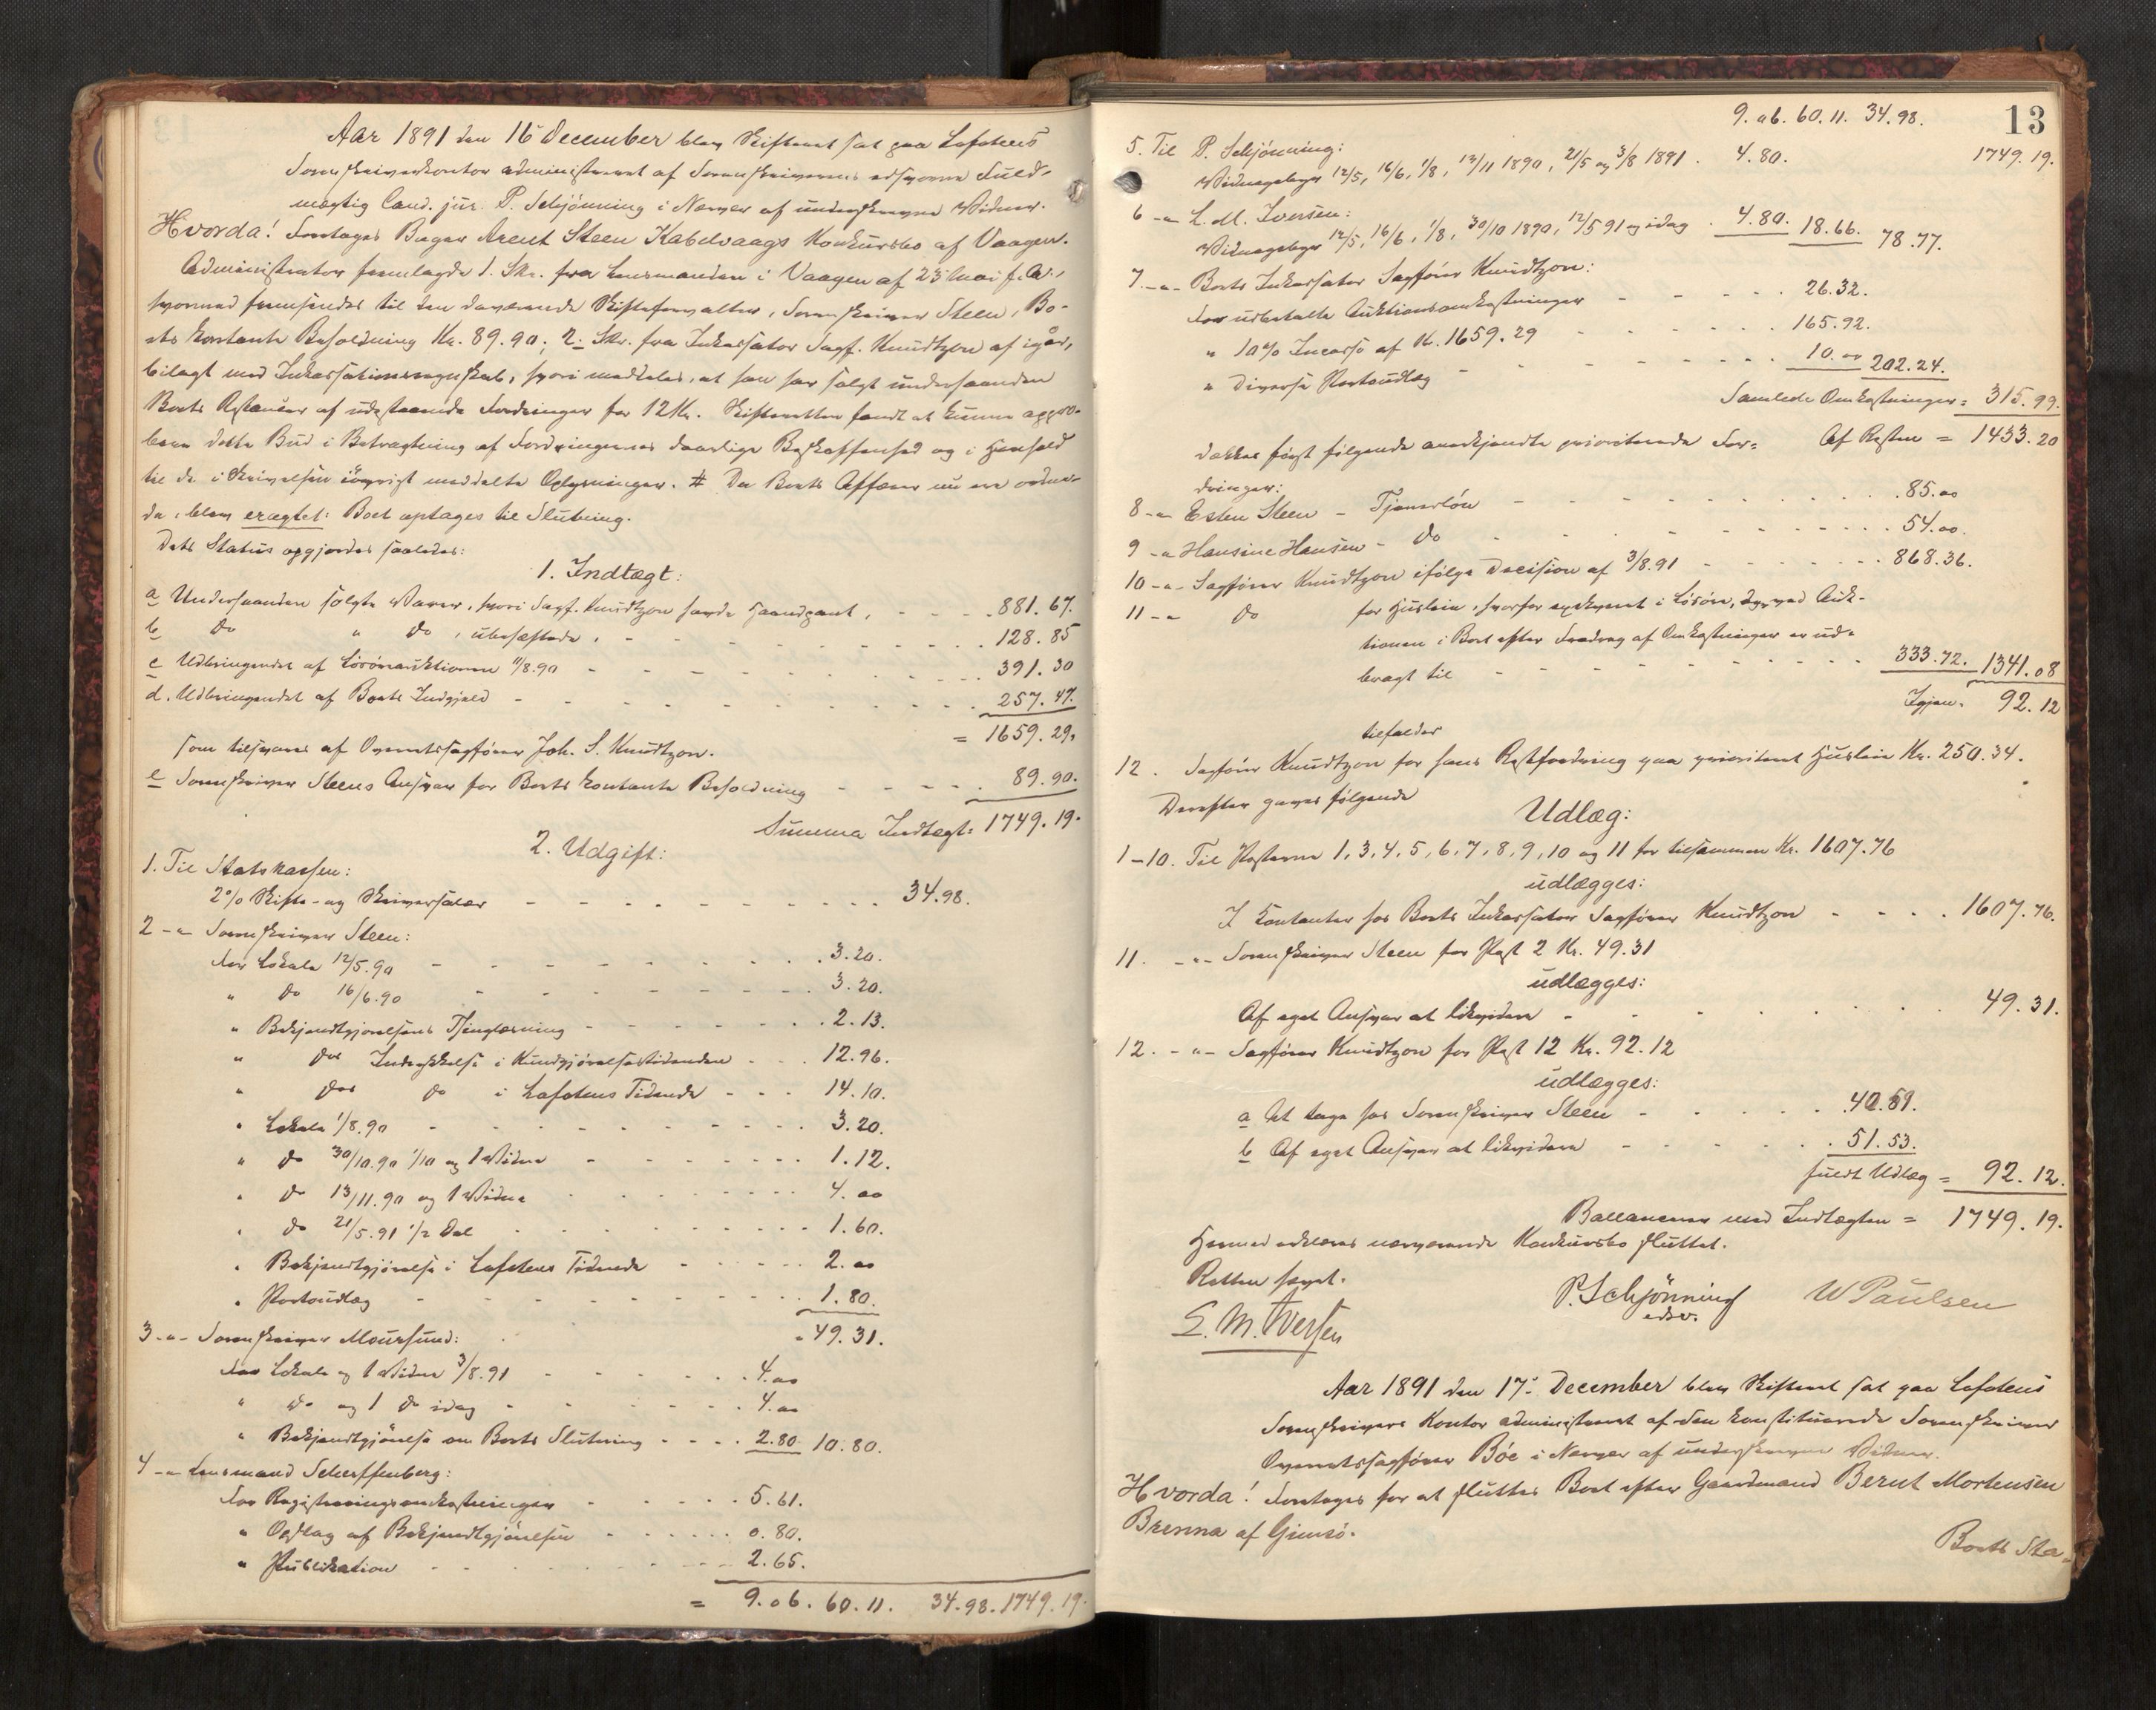 Aar 1891 den 16 December blev Skifteret sat paa Lofotens
Sorenskriverkontor administreret af Sorenskriverens edsvorne Fuld-
mægtig Cand. jur. P. Schjönning i Nærvær af underskrevne Vidner.
Hvorda! Foretoges Bager Arent Steen Kabelvaags Konkursbo af Vaagen.
Administrator fremlagde 1. Skr. fra Lensmanden i Vaagen af 23 Mai f. A.,
hvormed fremsendes til den daværende Skifteforvalter, Sorenskriver Steen, Bo-
ets kontante Beholdning Kr. 89.90; 2. Skr. fra Inkassator Sagf. Knudtzon af igår,
bilagt med Inkassationsregnskab, hvori meddeles, at han har solgt underhaanden
Boets Restancer af udestaaende Fordringer for 12 Kr. Skifteretten fandt at kunne appro-
bere dette Bud i Betragtning af Fordringernes daarlige Beskaffenhed og i Henhold
til de i Skrivelsen iövrigt meddelte Oplysninger. # Da Boets Affærer nu ere ordne-
de, blev eragtet: Boet optages til Slutning.
Dets Status opgjordes saaledes:
1. Indtægt:
a Underhaanden solgte Varer, hvori Sagf. Knudtzon havde Haandpant, - - - 881.67.
b Do " Do, ubehæftede, - - - 128.85
c Udbringendet af Lösöreauktionen 11/8.90 - - - 391.30
d. Udbringendet af Boets Indgjæld - - - 257.47.
= 1659.29,
som tilsvares af Overretssagförer Joh. S. Knudtzon.
e Sorenskriver Steens Ansvar for Boets kontante Beholdning - - - 89.90.
Summa Indtægt = 1749.19.
2. Udgift:
1. Til Statskassen:
2% Skifte- og Skriversalær - - - 34.98.
2 -"- Sorenskriver Steen:
For Lokale 12/5.90 - - - 3.20.
" Do 16/6.90 - - - 3.20.
" Bekjendtgjörelsens Thinglæsning - - - 2.13.
" Des Indrykkelse i Kundgjörelsestidenden - - - 12.96.
" Des Do i Lofotens Tidende - - - 14.10.
" Lokale 1/8.90 - - - 3.20.
" Do 30/10.90 1/10 og 1 Vidne - - - 1.12.
" Do 13/11.90 og 1 Vidne - - - 4.00
" Do 21/5.91 1/2 Del - - - 1.60.
" Bekjendtgjörelse i Lofotens Tidende - - - 2.00
" Portoudlæg - - - 1.80.
" 49.31.
3 -"- Sorenskriver Moursund:
For Lokale og 1 Vidne 3/8.91 - - - 4.00
" Do og 1 Do idag - - - 4.00
" Bekjendtgjörelse om Boets Slutning - - - 2.80 10.80.
4 -"- Lensmand Scherffenberg:
For Registreringsomkostninger - - - 5.61.
" Opslag af Bekjendtgjörelsen - - - 0.80.
" Publikation - - - 2.65.
= 9.06. 60.11. 34.98. 1749.19.
13
9.06. 60.11. 34.98.
1749.19.
5. Til P. Schjönning:
Vidnegebyr 12/5, 16/6, 1/8, 13/11 1890, 21/5 og 3/8 1891. 4.80.
6 -"- L. M. Iversen:
Vidnegebyr 12/5, 16/6, 1/8, 30/10 1890, 12/5 91 og idag. 4.80. 18.66. 78.77.
7 -"- Boets Inkassator Sagförer Knudtzon:
For udbetalte Auktionsomkostninger - - - 26.32.
" 10% Incasso af Kr. 1659.29 - - - 165.92.
" Diverse Portoudlæg - - - 10.00 202.24.
Samlede Omkostninger = 315.99.
Af Resten = 1433.20
dækkes först fölgende anerkjendte prioriterede For-
dringer:
8 -"- Esten Steen - Tjenerlön - - - 85.00
9 -"- Hansine Hansen - Do - - - 54.00.
10 -"- Sagförer Knudtzon ifölge Decision af 3/8.91 - - - 868.36.
11 -"- Do for Husleie, hvorfor exekveret i Lösöre, der ved Auk-
tionen i Boet efter Fradrag af Omkostninger er ud-
bragt til - - - 333.72. 1341.08
Igjen = 92.12
tilfalder
12. Sagförer Knudtzon for hans Restfordring paa prioriteret Husleie Kr. 250.34.
Derefter gaves fölgende
Udlæg:
1-10. Til Posterne 1, 3, 4, 5, 6, 7, 8, 9, 10 og 11 for tilsammen Kr. 1607.76
udlægges:
I Kontanter hos Boets Inkassator Sagförer Knudtzon - - - 1607.76.
11. -"- Sorenskriver Steen for Post 2 Kr. 49.31
udlægges:
Af eget Ansvar at likvidere - - - 49.31.
12. -"- Sagförer Knudtzon for Post 12 Kr. 92.12
udlægges:
a At tage hos Sorenskriver Steen - - - 40.59.
b Af eget Ansvar at likvidere - - - 51.53.
fuldt Udlæg = 92.12.
Ballancerer med Indtægten = 1749.19.
Hermed erklæres nærværende Konkursbo sluttet.
Retten hævet.
P. Schjönning W Paulsen
edsv.
L. M. Iversen
Aar 1891 den 17. December blev Skifteret sat paa Lofotens
Sorenskrivers Kontor administreret af den konstituerede Sorenskriver
Overretssagförer Böe i Nærvær af underskrevne Vidner.
Hvorda! Foretoges for at sluttes Boet efter Gaardmand Bernt Mortensen
Brenna af Gimsö.
Boets Sta-